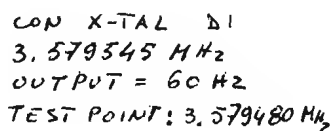 CON X-TAL DI
3.579545 MHz
OUTPUT = 60 HZ
TEST POINT: 3.579480 MHz